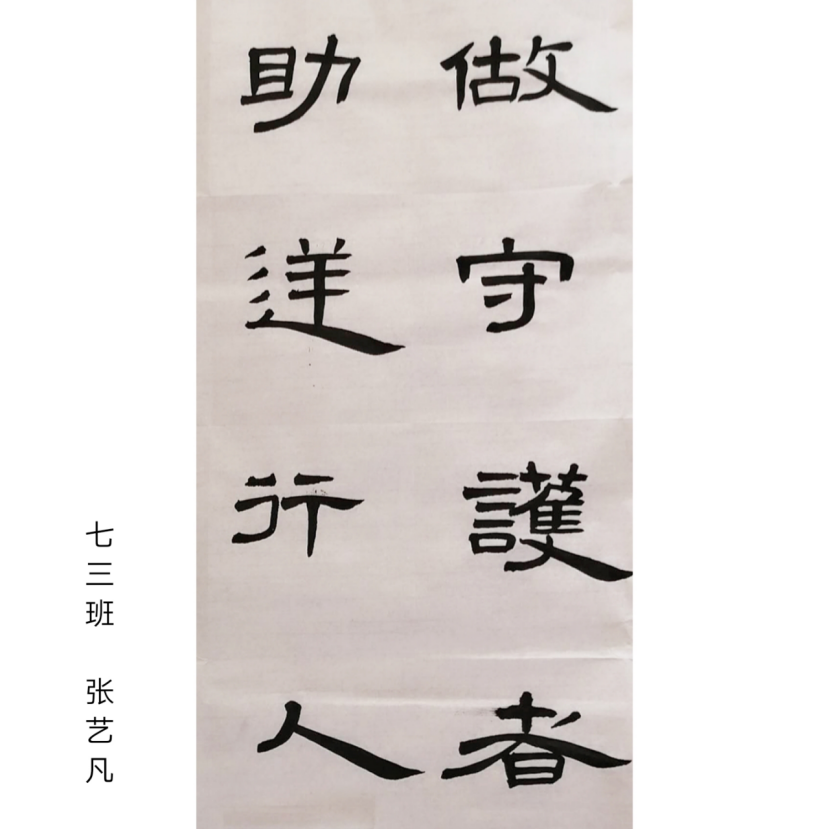 做守護者
助逆行人
七三班 张艺凡